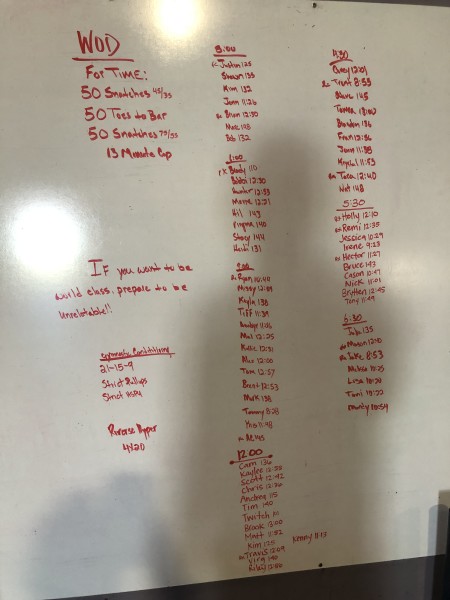 WOD
For Time:
50 Snatches 45/35
50 Toes to Bar
50 Snatches 75/55
13 Minute Cap
If you want to be
world class, prepare to be
Unrelatable!!
Gymnastic Conditioning
21-15-9
Strict Pullups
Strict HSPU
Reverse Hyper
4x20
Justin 125
Shawn 135
Kim 132
Jenn 11:26
Brian 12:30
148
Bob 132
Brady 110
Bobbi 12:30
12:33
12:21
Hil 143
Virginia 140
Stacy 144
Heidi 131
9:00
Ryan 10:40
Missy 12:09
Kayla 138
Tiff 11:39
11:06
Mel 12:25
12:31
12:00
Tom 12:57
Brent 12:53
Mark 138
Tommy 8:28
Kris 11:48
12:00
Cam 136
Kaylee 12:55
Scott 12:42
Chris 12:36
Andrea 115
Tim 140
Twitch
Brook 13:00
Matt 11:52
Kim 125
Kenny 11:13
Travis 12:09
140
Riley 12:56
4:30
12:04
Trent 8:55
Steve 145
Brandon 136
Fran 12:36
Jenn 11:35
Krystal 11:53
Tara 12:40
Nat 148
5:30
Holly 12:10
Remi 12:35
Jessica 10:29
Irene 9:23
Hector 11:27
Bruce 143
Cason 10:47
Nick 11:01
Brytten 12:45
Tony 11:49
6:30
135
12:40
Jake 8:53
10:25
Lisa 10:20
Toni
Marty 10:54